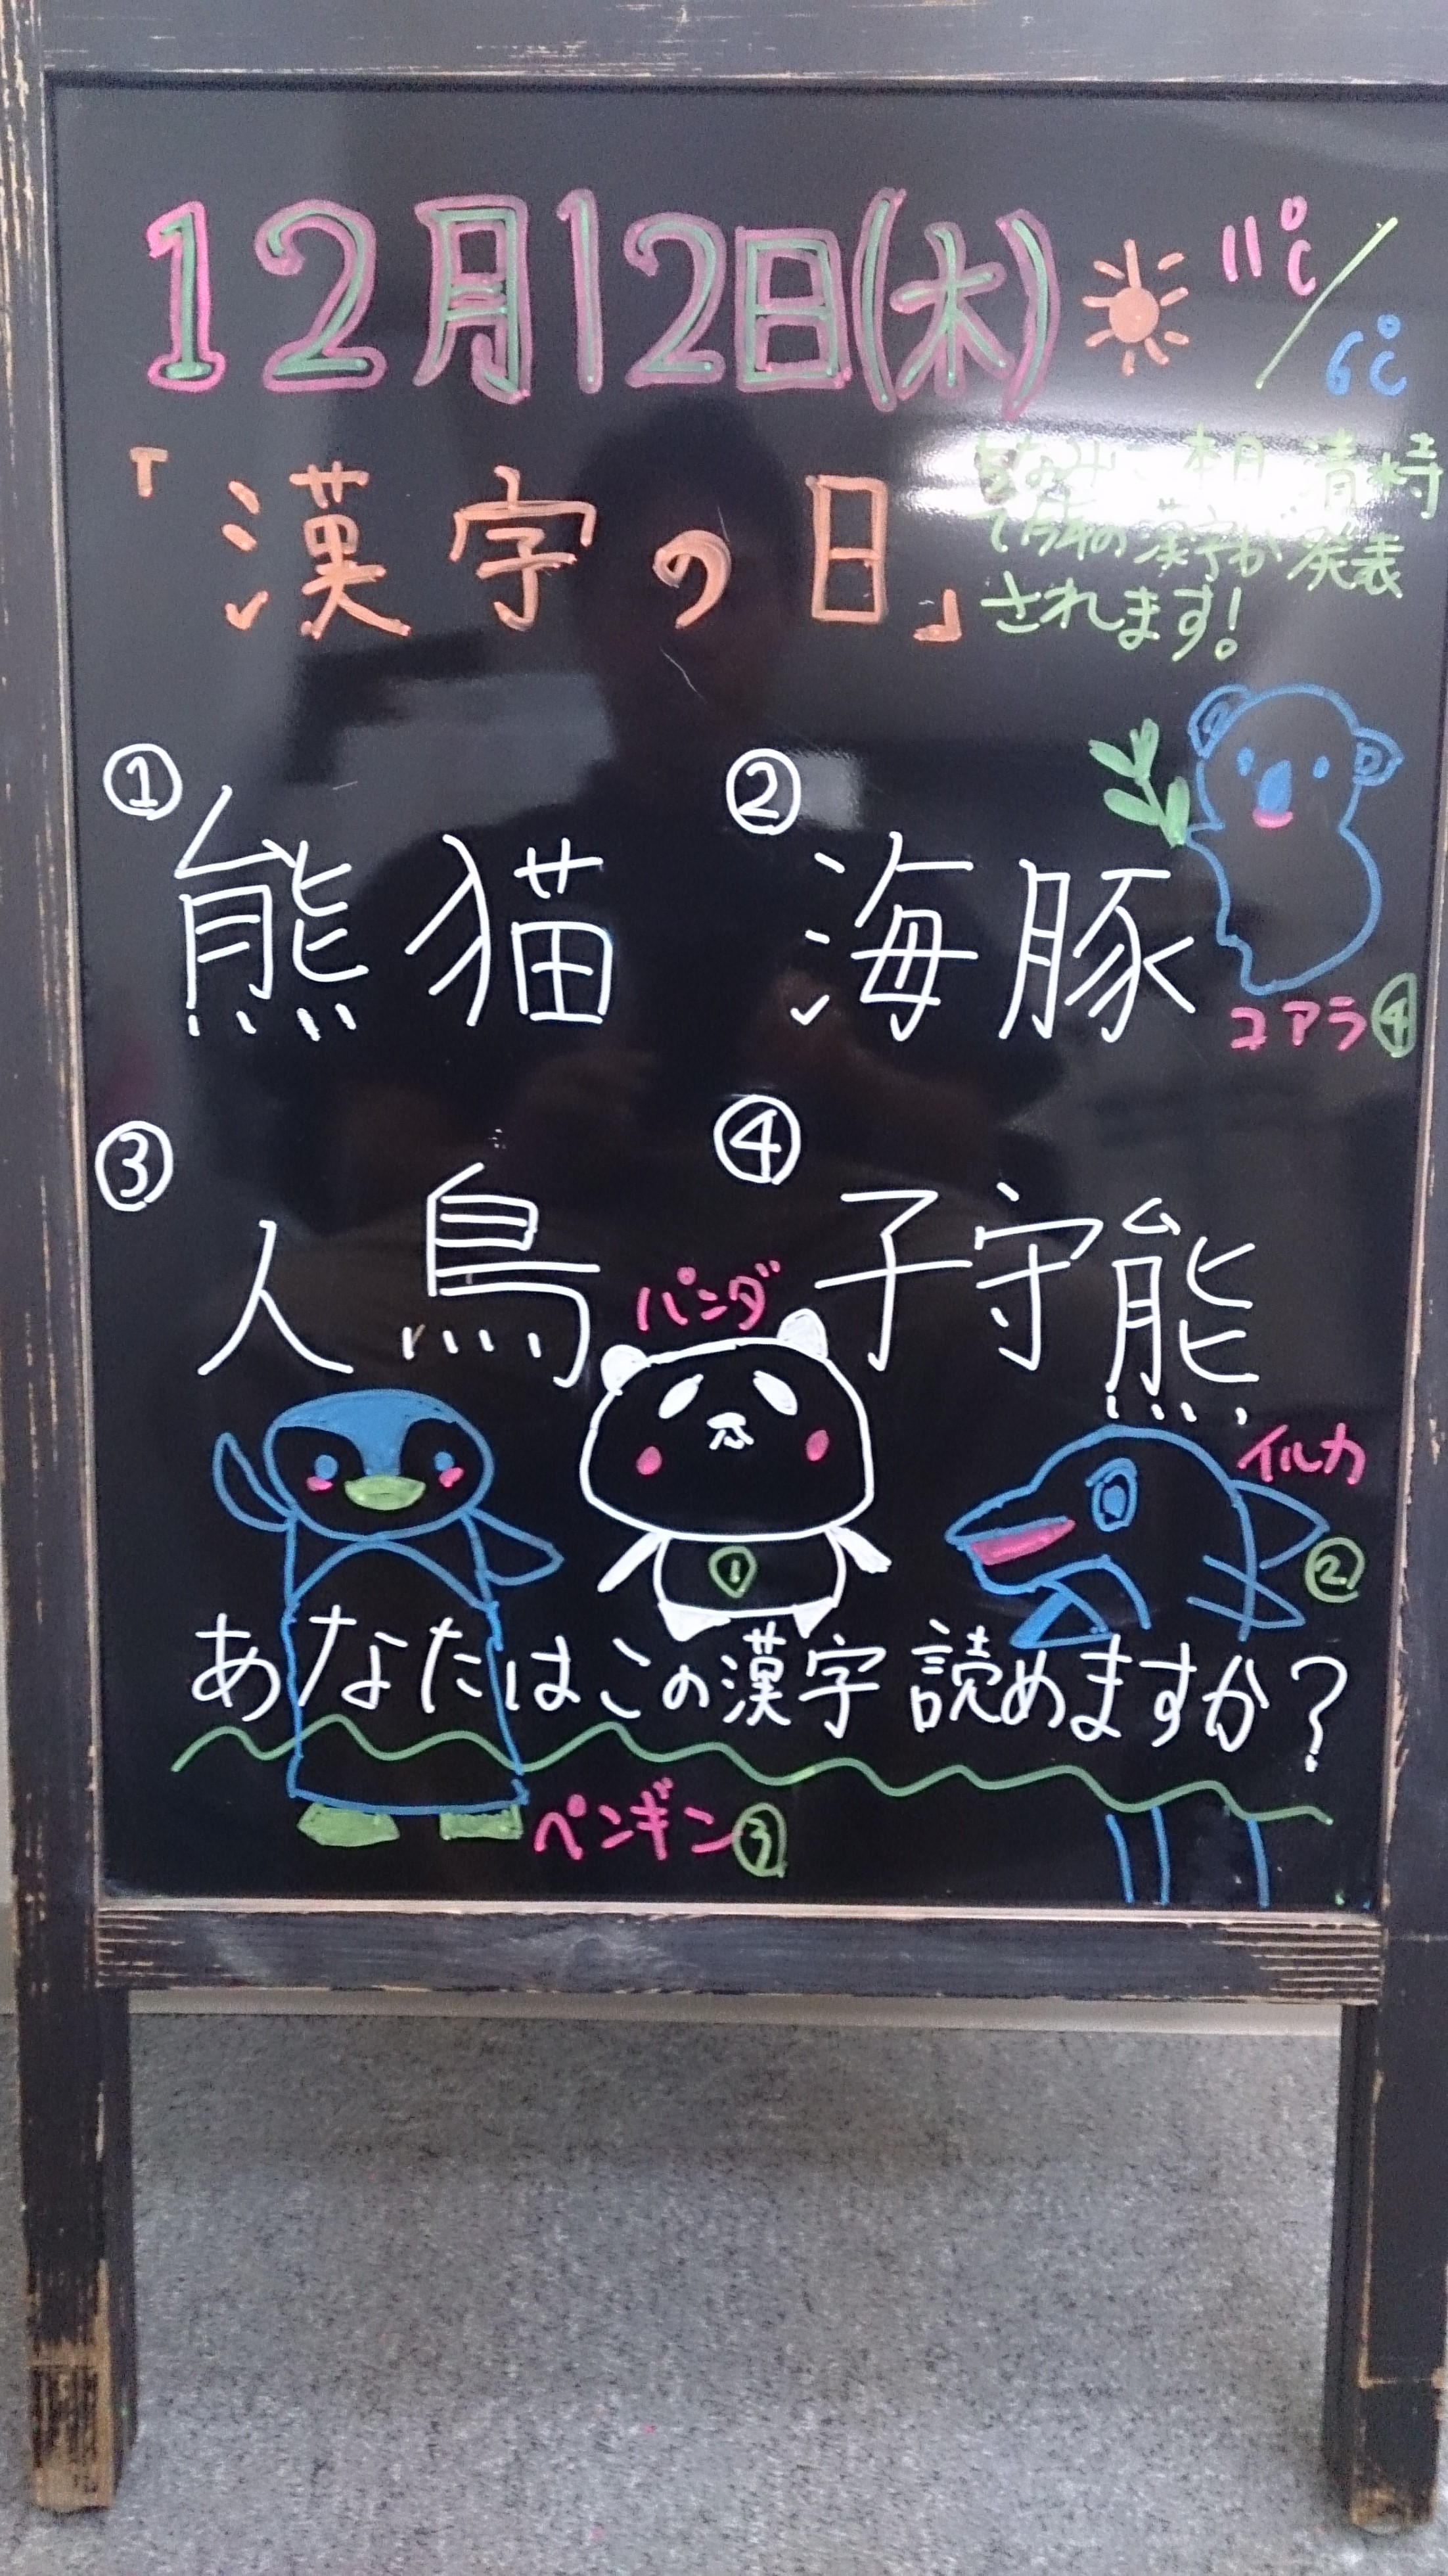 12月12日(木) 11℃/6℃
「漢字の日」
ちなみに本日 清水寺
で今年の漢字が発表
されます!
① 熊猫
② 海豚
コアラ④
③ 人鳥
④ 子守熊
パンダ
①
イルカ
②
あなたはこの漢字読めますか?
ペンギン③